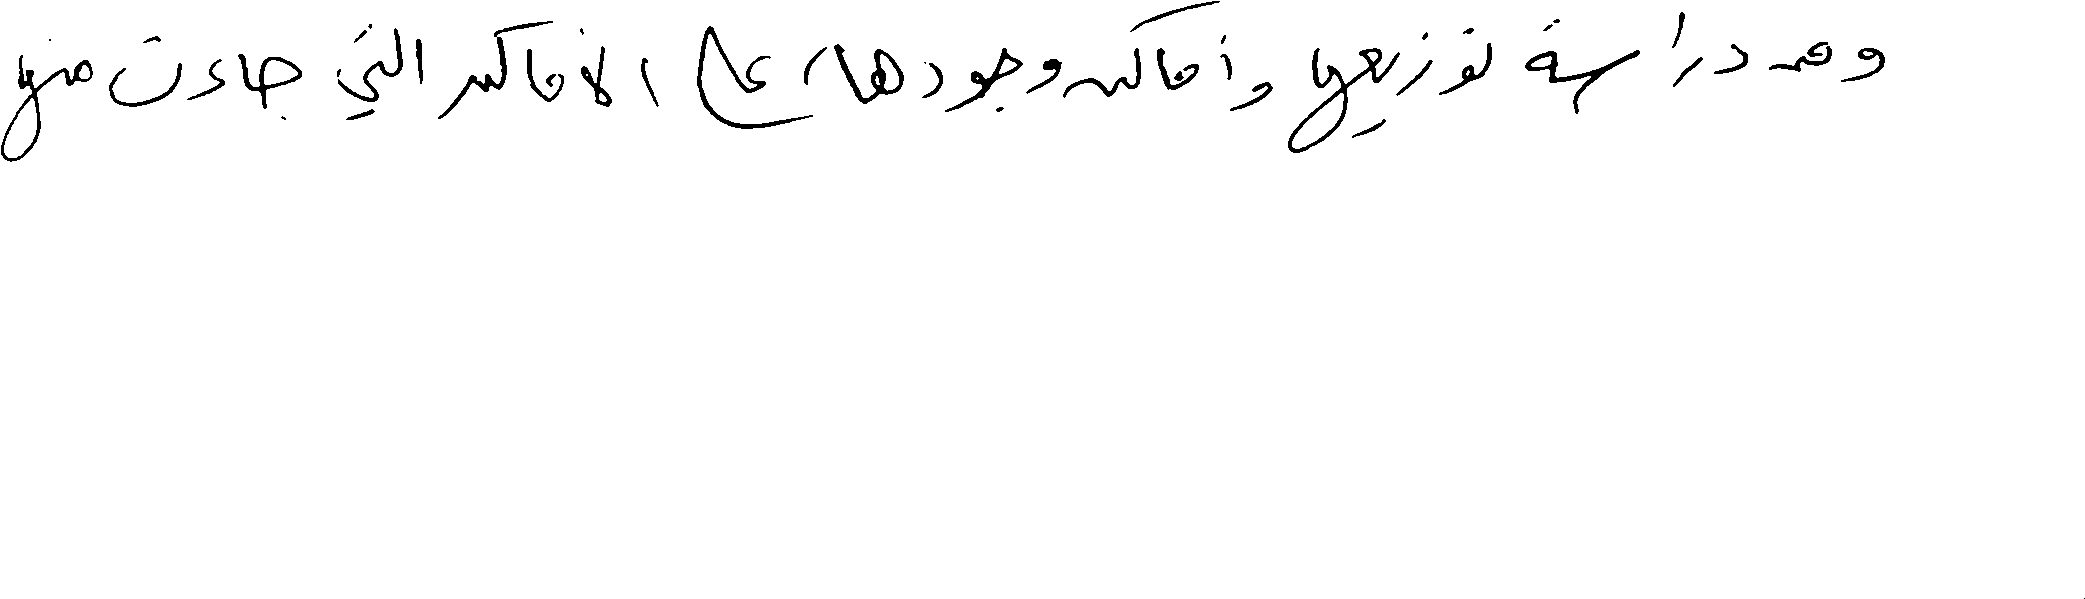 ومن دراسة توزيعها وأماكن وجودها، على الأماكن التي جاءت منها